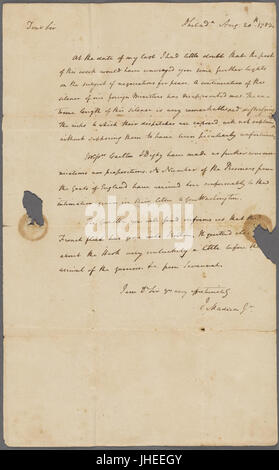 Philada Aug. 20th 1782.
Dear Sir
At the date of my last I had little doubt that the post
of this week would have conveyed you some further lights
on the subject of negociations for peace. A continuation of the
silence of our foreign Ministers has disappointed me. The ex-
treme length of this silence is very remarkable; & supposing
the risks to which their dispatches are exposed was not explain
without supposing them to have been peculiarly unfortunate
Carlton & Digby have made no further commu-
nications nor propositions. A Number of the Prisoners from
the Goals of England have arrived here conformably to the
information given in their letter to Genl Washington.
informs us that the
French fleet
about the Havk very unluckily a little before the
arrival of the garrison &c from Savannah.
I am Dr Sir Yrs very affectionately
J. Madison Jr.
alamy
Image ID: JHEEGY
www.alamy.com